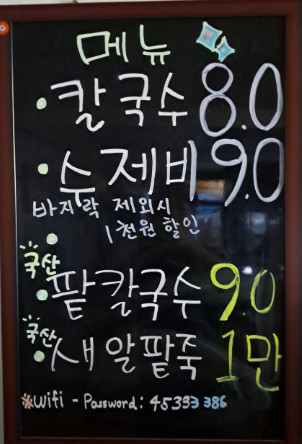 메뉴
칼국수 8.0
수제비 9.0
바지락 제외시
1천원 할인
국산
팥칼국수 9.0
국산
새알팥죽 1만
※wifi - Password: 45393386